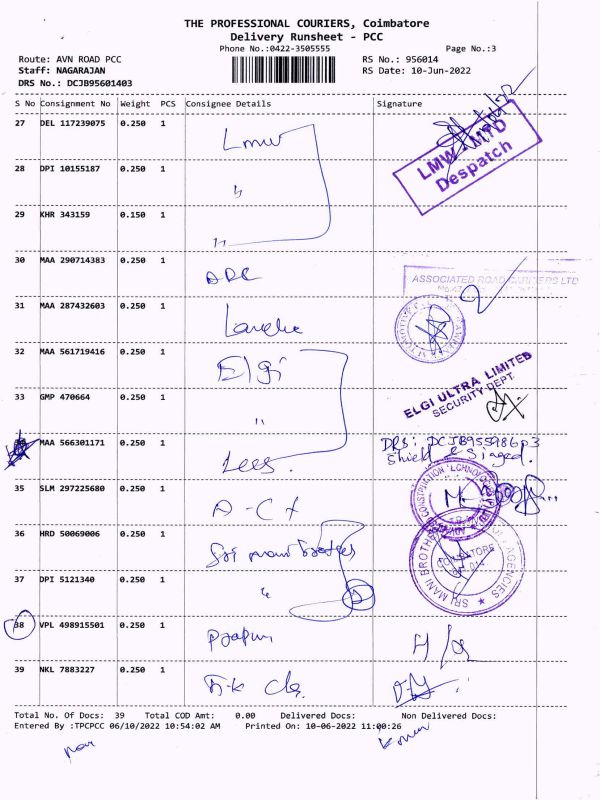 THE PROFESSIONAL COURIERS, Coimbatore
Delivery Runsheet - PCC
Phone No.:0422-3505555
Page No.:3
Route: AVN ROAD PCC
RS No.: 956014
Staff: NAGARAJAN
RS Date: 10-Jun-2022
DRS No.: DCJB95601403
S No Consignment No Weight PCS Consignee Details Signature
27 DEL 117239075 0.250 1 Lmw
LMW - MTD
Despatch
28 DPI 10155187 0.250 1 "
29 KHR 343159 0.150 1 "
30 MAA 290714383 0.250 1 ARC
ASSOCIATED ROAD CARRIERS LTD
31 MAA 287432603 0.250 1
32 MAA 561719416 0.250 1 Elgi
ELGI ULTRA LIMITED
SECURITY DEPT.
33 GMP 470664 0.250 1 "
MAA 566301171 0.250 1
DRS: DCJB95598603
35 SLM 297225680 0.250 1
36 HRD 50069006 0.250 1 Sri mani
SRI MANI BROTHERS AGENCIES
37 DPI 5121340 0.250 1 "
38 VPL 498915501 0.250 1
39 NKL 7883227 0.250 1
Total No. Of Docs: 39 Total COD Amt: 0.00 Delivered Docs: Non Delivered Docs:
Entered By :TPCPCC 06/10/2022 10:54:02 AM Printed On: 10-06-2022 11:00:26